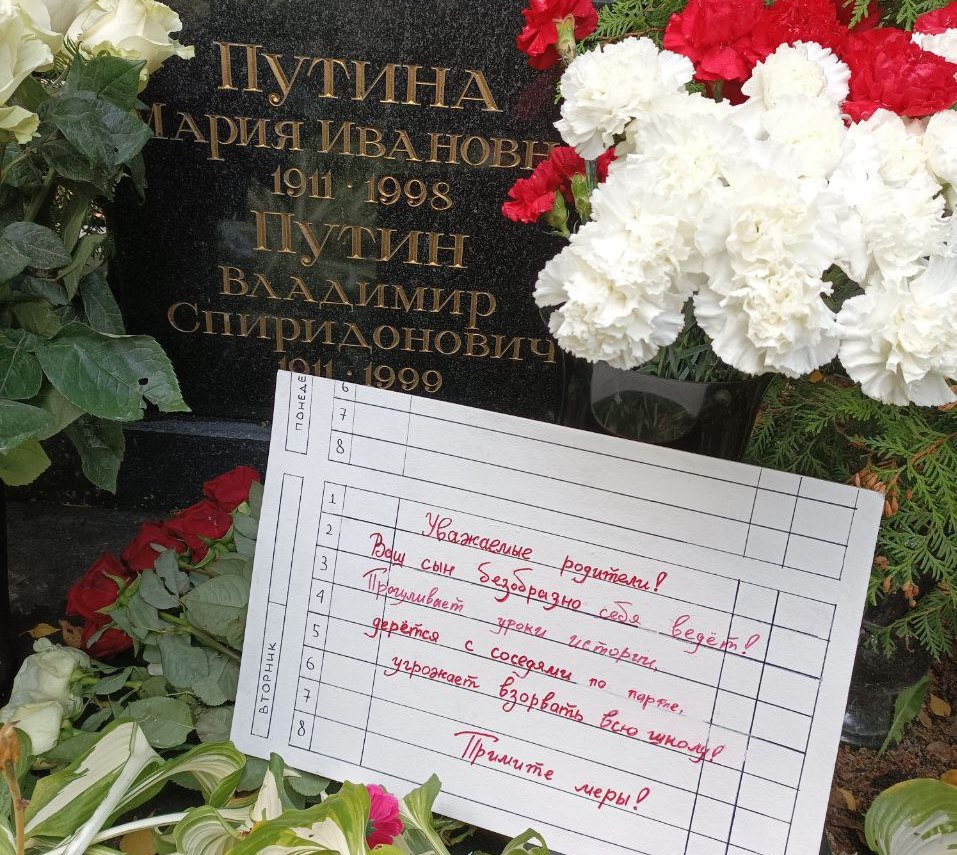 Путина
Мария Ивановн
1911 · 1998
Путин
Владимир
Спиридонович
1911 · 1999
ПОНЕДЕ
6
7
8
ВТОРНИК
1
2
3
4
5
6
7
8
Уважаемые родители!
Ваш сын безобразно себя ведёт!
Прогуливает уроки истории,
дерётся с соседями по парте,
угрожает взорвать всю школу!
Примите меры!